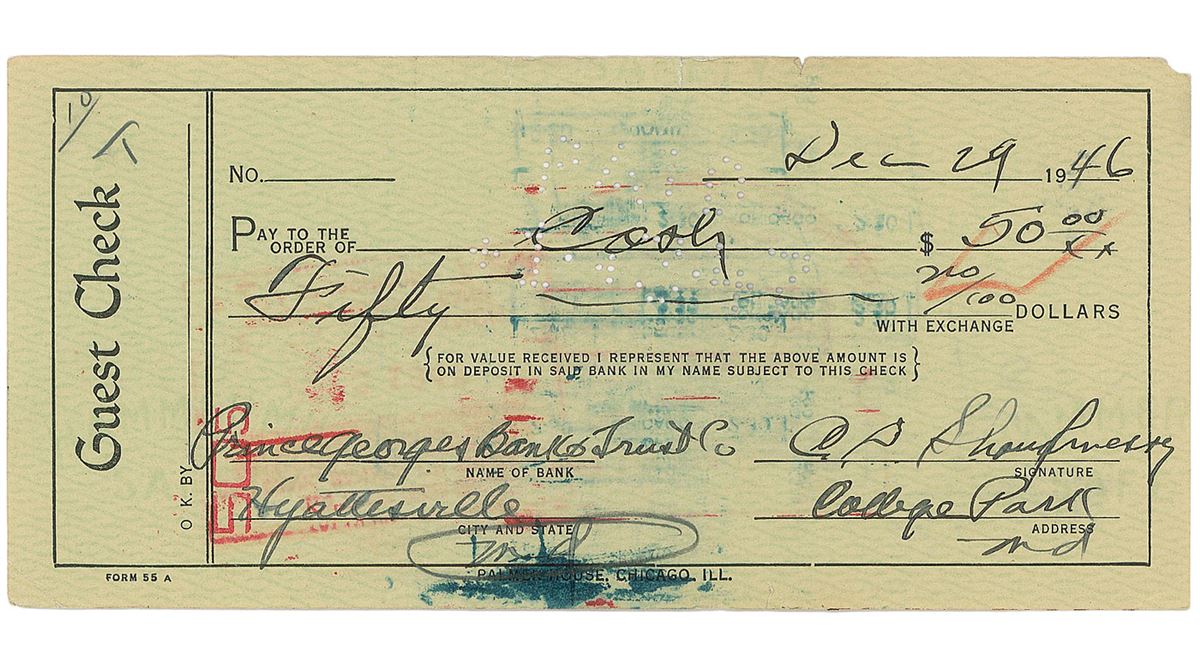 10/
Guest Check
O.K. BY
No. Dec 29 1946
PAY TO THE
ORDER OF Cash $ 50 00/xx
Fifty no/100 DOLLARS
WITH EXCHANGE
{FOR VALUE RECEIVED I REPRESENT THAT THE ABOVE AMOUNT IS
ON DEPOSIT IN SAID BANK IN MY NAME SUBJECT TO THIS CHECK}
Prince Georges Bank & Trust Co C D Shaughnessy
NAME OF BANK SIGNATURE
Hyattesville College Park
CITY AND STATE ADDRESS
Md Md
PALMER HOUSE, CHICAGO, ILL.
FORM 55 A